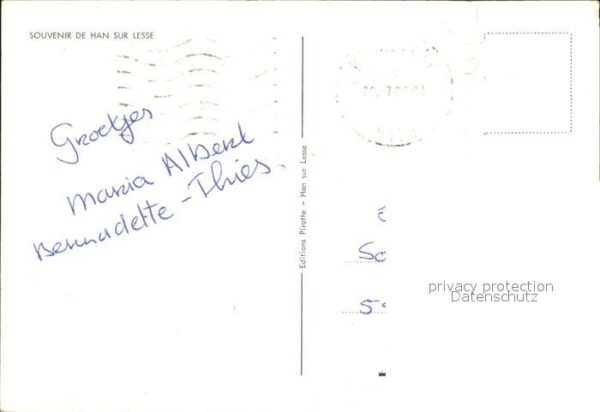 SOUVENIR DE HAN SUR LESSE
Groetjes
Maria Albert
Bernadette - Thies.
Editions Piratte - Han sur Lesse
privacy protection
Datenschutz